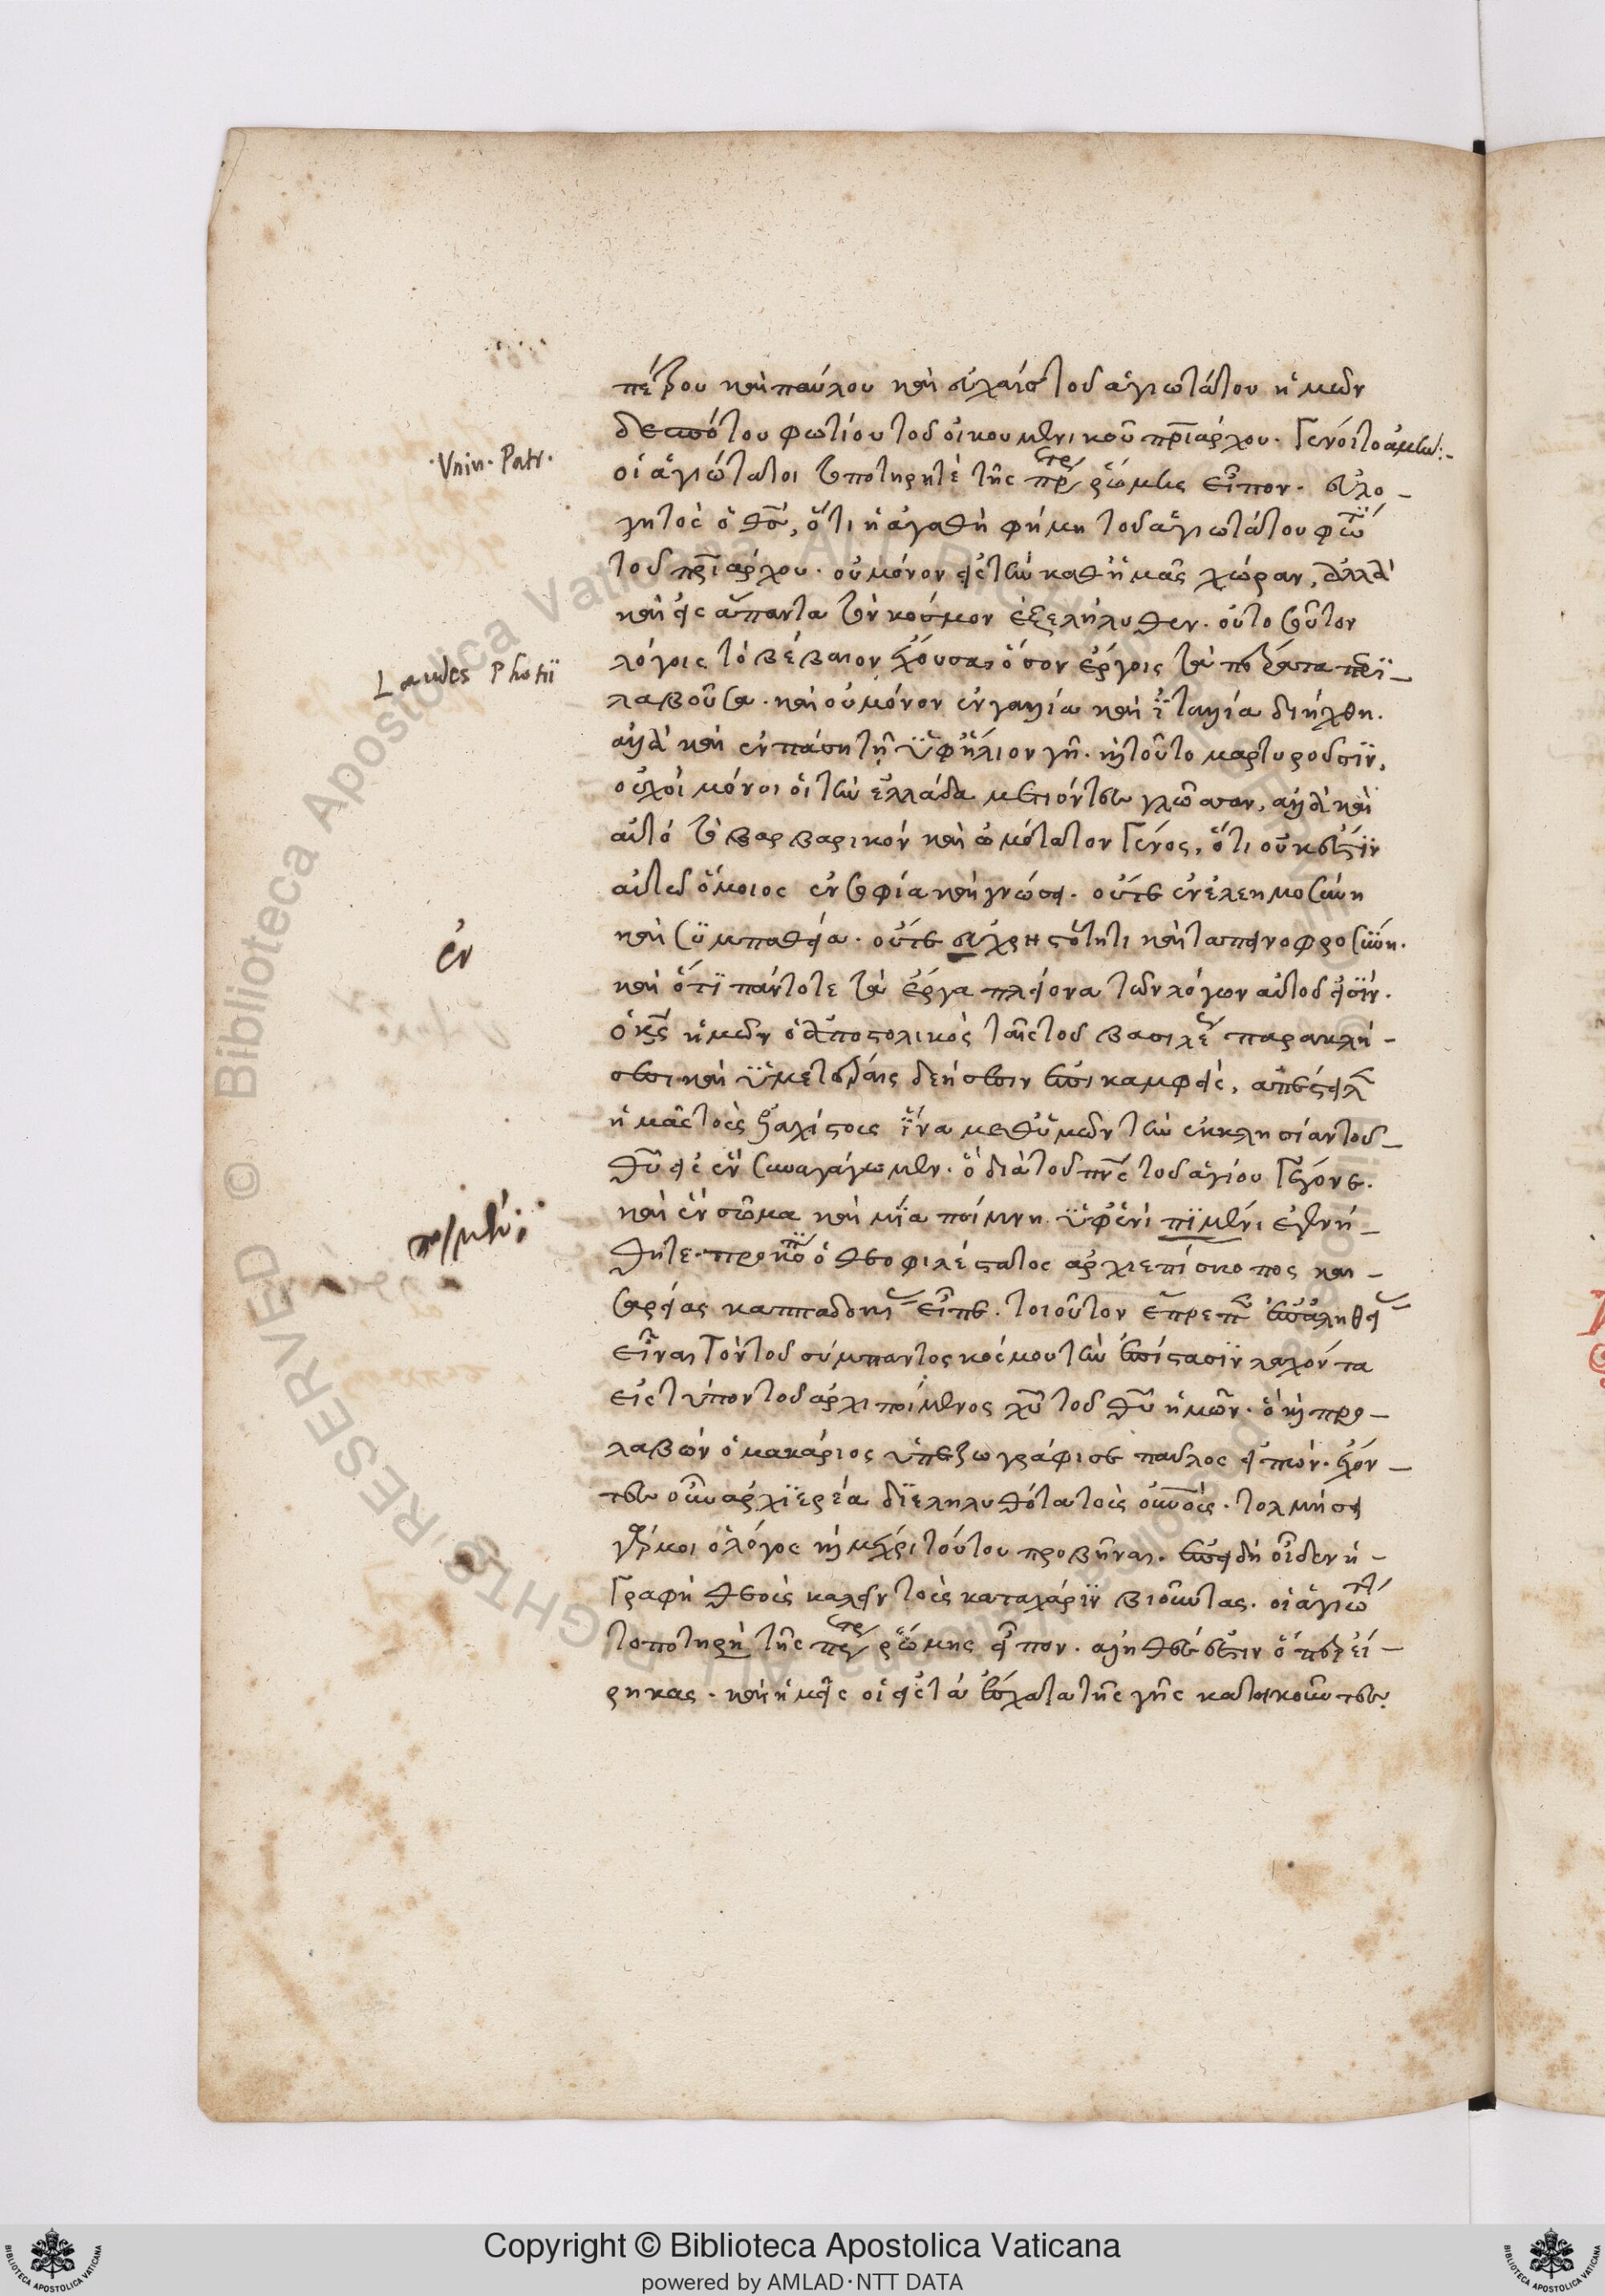 πέτρου καὶ παύλου καὶ εὐχαῖς τοῦ ἁγιωτάτου ἡμῶν
δεσπότου φωτίου τοῦ οἰκουμενικοῦ πριάρχου. Γένοιτο ἀμήν:-
·Vnin· Patr·
οἱ ἁγιώτατοι τοποτηρηταὶ τῆς πρε ῥώμης εἶπον· εὐλο-
γητὸς ὁ θσ, ὅτι ἡ ἀγαθὴ φήμη τοῦ ἁγιωτάτου φωτ
τοῦ πριάρχου· οὐ μόνον εἰς τὴν καθ' ἡμᾶς χώραν, ἀλλὰ
καὶ εἰς ἅπαντα τὸν κόσμον ἐξελήλυθεν· οὐ τοσοῦτον
Laudes Photii
λόγοις τὸ βέβαιον ἔχουσα, ὅσον ἔργοις τὰ πέρατα περι-
λαβοῦσα· καὶ οὐ μόνον ἐν γαλλία καὶ ἰταλία διήχθη·
ἀλλὰ καὶ ἐν πάση τῆ ὑφ' ἥλιον γῆ· καὶ τοῦτο μαρτυροῦσιν,
οὐχ οἱ μόνοι οἱ τὴν ἑλλάδα μετιόντες γλῶσσαν, ἀλλὰ καὶ
αὐτὸ τὸ βαρβαρικὸν καὶ ὠμότατον Γένος, ὅτι οὐκ ἔστιν
αὐτῶ ὅμοιος ἐν σοφία καὶ γνώσει· οὔτε ἐν ἐλεημοσύνη
ἐν
καὶ συμπαθεία· οὔτε εὐχρηστότητι καὶ ταπεινοφροσύνη·
καὶ ὅτι πάντοτε τὰ ἔργα πλείονα τῶν λόγων αὐτοῦ εἰσίν·
ὁ κς ἡμῶν ὁ ἀποστολικὸς ταῖς τοῦ βασιλέ παρακλή-
σεσι καὶ ὑμετέραις δεήσεσιν ἐπικαμφθεὶς, ἀπέστειλ
ἡμᾶς τοὺς ἐλαχίστους ἵνα μεθ' ὑμῶν τὴν ἐκκλησίαν τοῦ-
θυ εἰς ἓν συναγάγωμεν· ὃ διὰ τοῦ πνς τοῦ ἁγίου Γέγονε·
καὶ ἓν σῶμα καὶ μία ποίμνη ὑφ' ἑνὶ πιμένι ἐγενή-
ποιμένι:
θητε· προκόπι ὁ θεοφιλέστατος ἀρχιεπίσκοπος και-
σαρείας καππαδοκί εἶπε· τοιοῦτον ἔπρεπ ἐπ' ἀληθεί
εἶναι Τὸν τοῦ σύμπαντος κόσμου τὴν ἐπίστασιν λαχόντα
εἰς τύπον τοῦ ἀρχιποίμενος χυ τοῦ θυ ἡμῶν· ὃ καὶ προ-
λαβὼν ὁ μακάριος ὑπεζωγράφισε παῦλος εἰπών· ἔχον-
τες οὖν ἀρχιερέα διεληλυθότα τοὺς οὐνοὺς· τολμήσει
γάρ μοι ὁ λόγος καὶ μέχρι τούτου προβῆναι· ἐπειδὴ οἶδεν ἡ-
Γραφὴ θεοὺς καλεῖν τοὺς κατα χάριν βιοῦντας· οἱ ἁγιωτ
τοποτηρη τῆς πρε ῥώμης εἶπον· ἀληθὲς ἐστιν ὅπερ εἴ-
ρηκας· καὶ ἡμεῖς οἱ εἰς τὰ ἔσχατα τῆς γῆς κατοικοῦντες
Copyright © Biblioteca Apostolica Vaticana
powered by AMLAD·NTT DATA